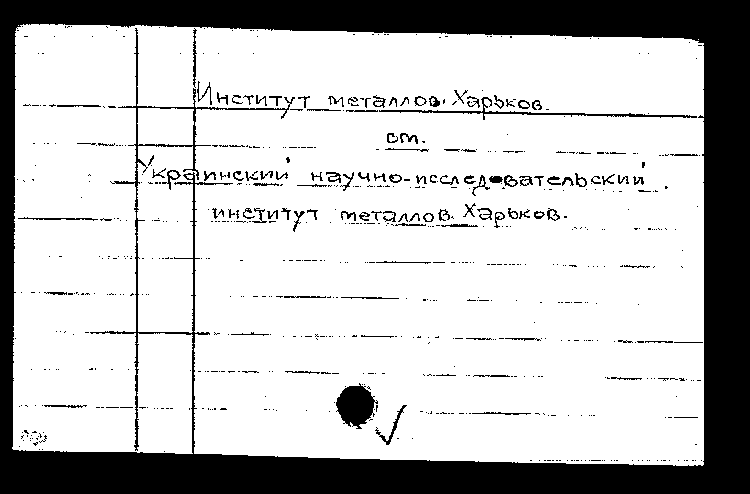 Институт металлов. Харьков.
см.
Украинский научно-исследовательский
институт металлов. Харьков.